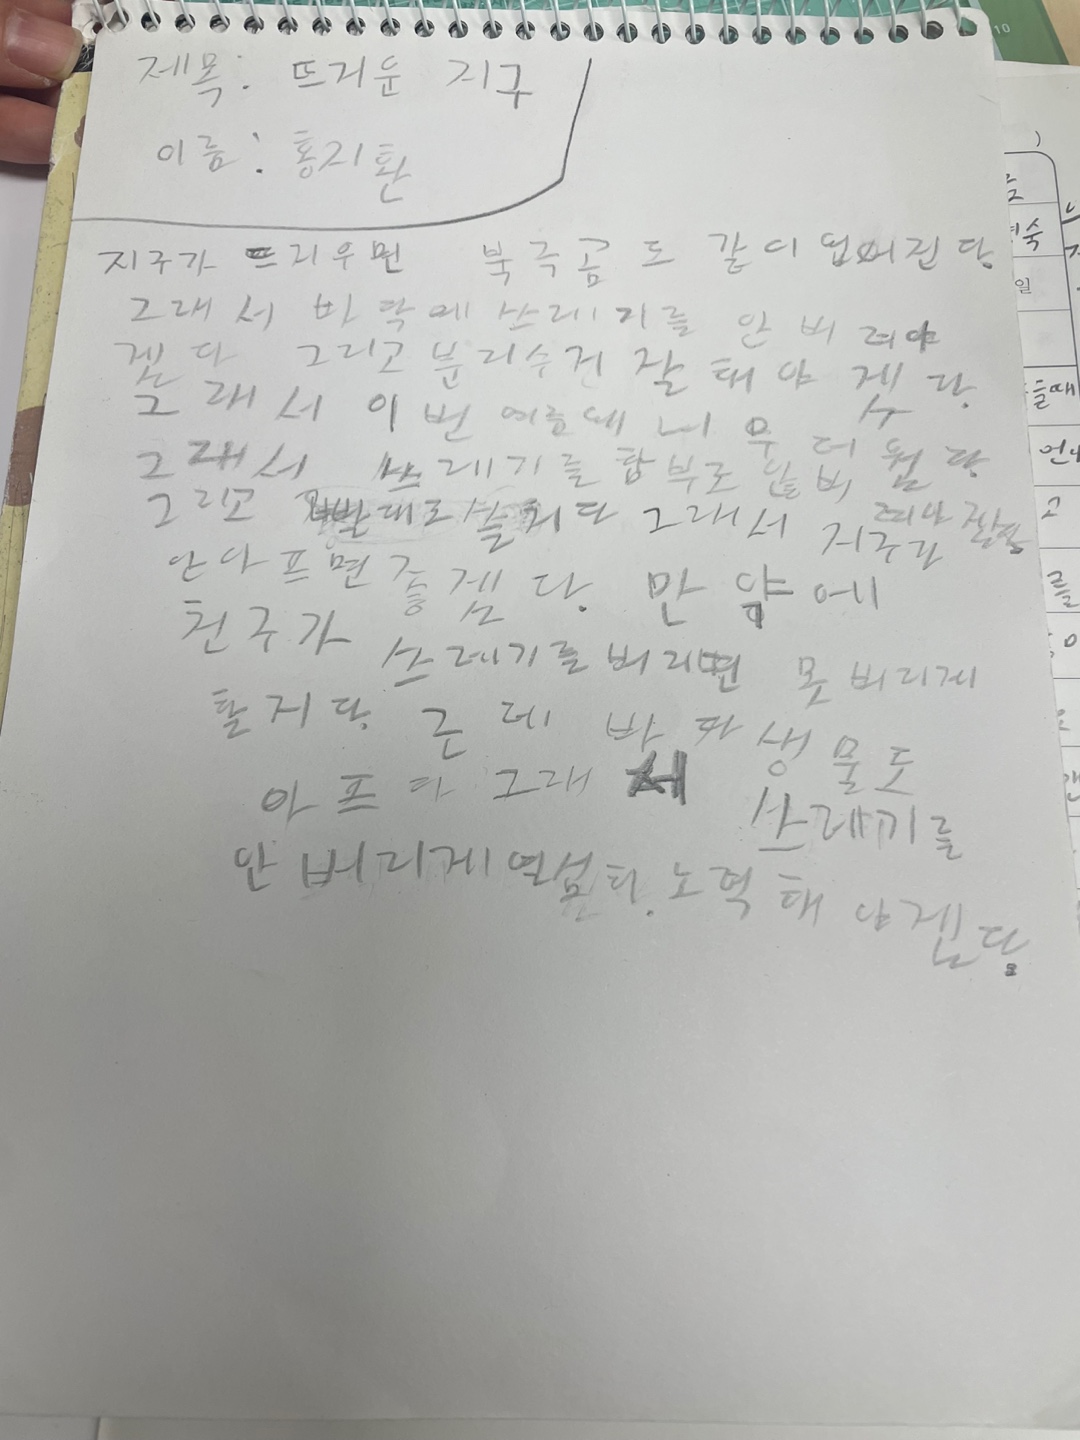 제목: 뜨거운 지구
이름: 홍지환
지구가 뜨리우면 북극곰도 같이 업어진당
그래서 바닥에 쓰레기를 안 버려야
겠다 그리고 분리수건 잘 해야 겠당
그래서 이번 여름에 너무 더웠당
그래서 쓰레기를 함부로 안버
그리고 빨대로 싫다 그래서 지구가
안아프면 좋겠당 만약에
친구가 쓰레기를 버리면 못 버리게
할 지당 근데 바다 생물도
아프다 그래서 쓰레기를
안 버리게 열심히 노력해야겠당
10
숙
일
들때
고
를